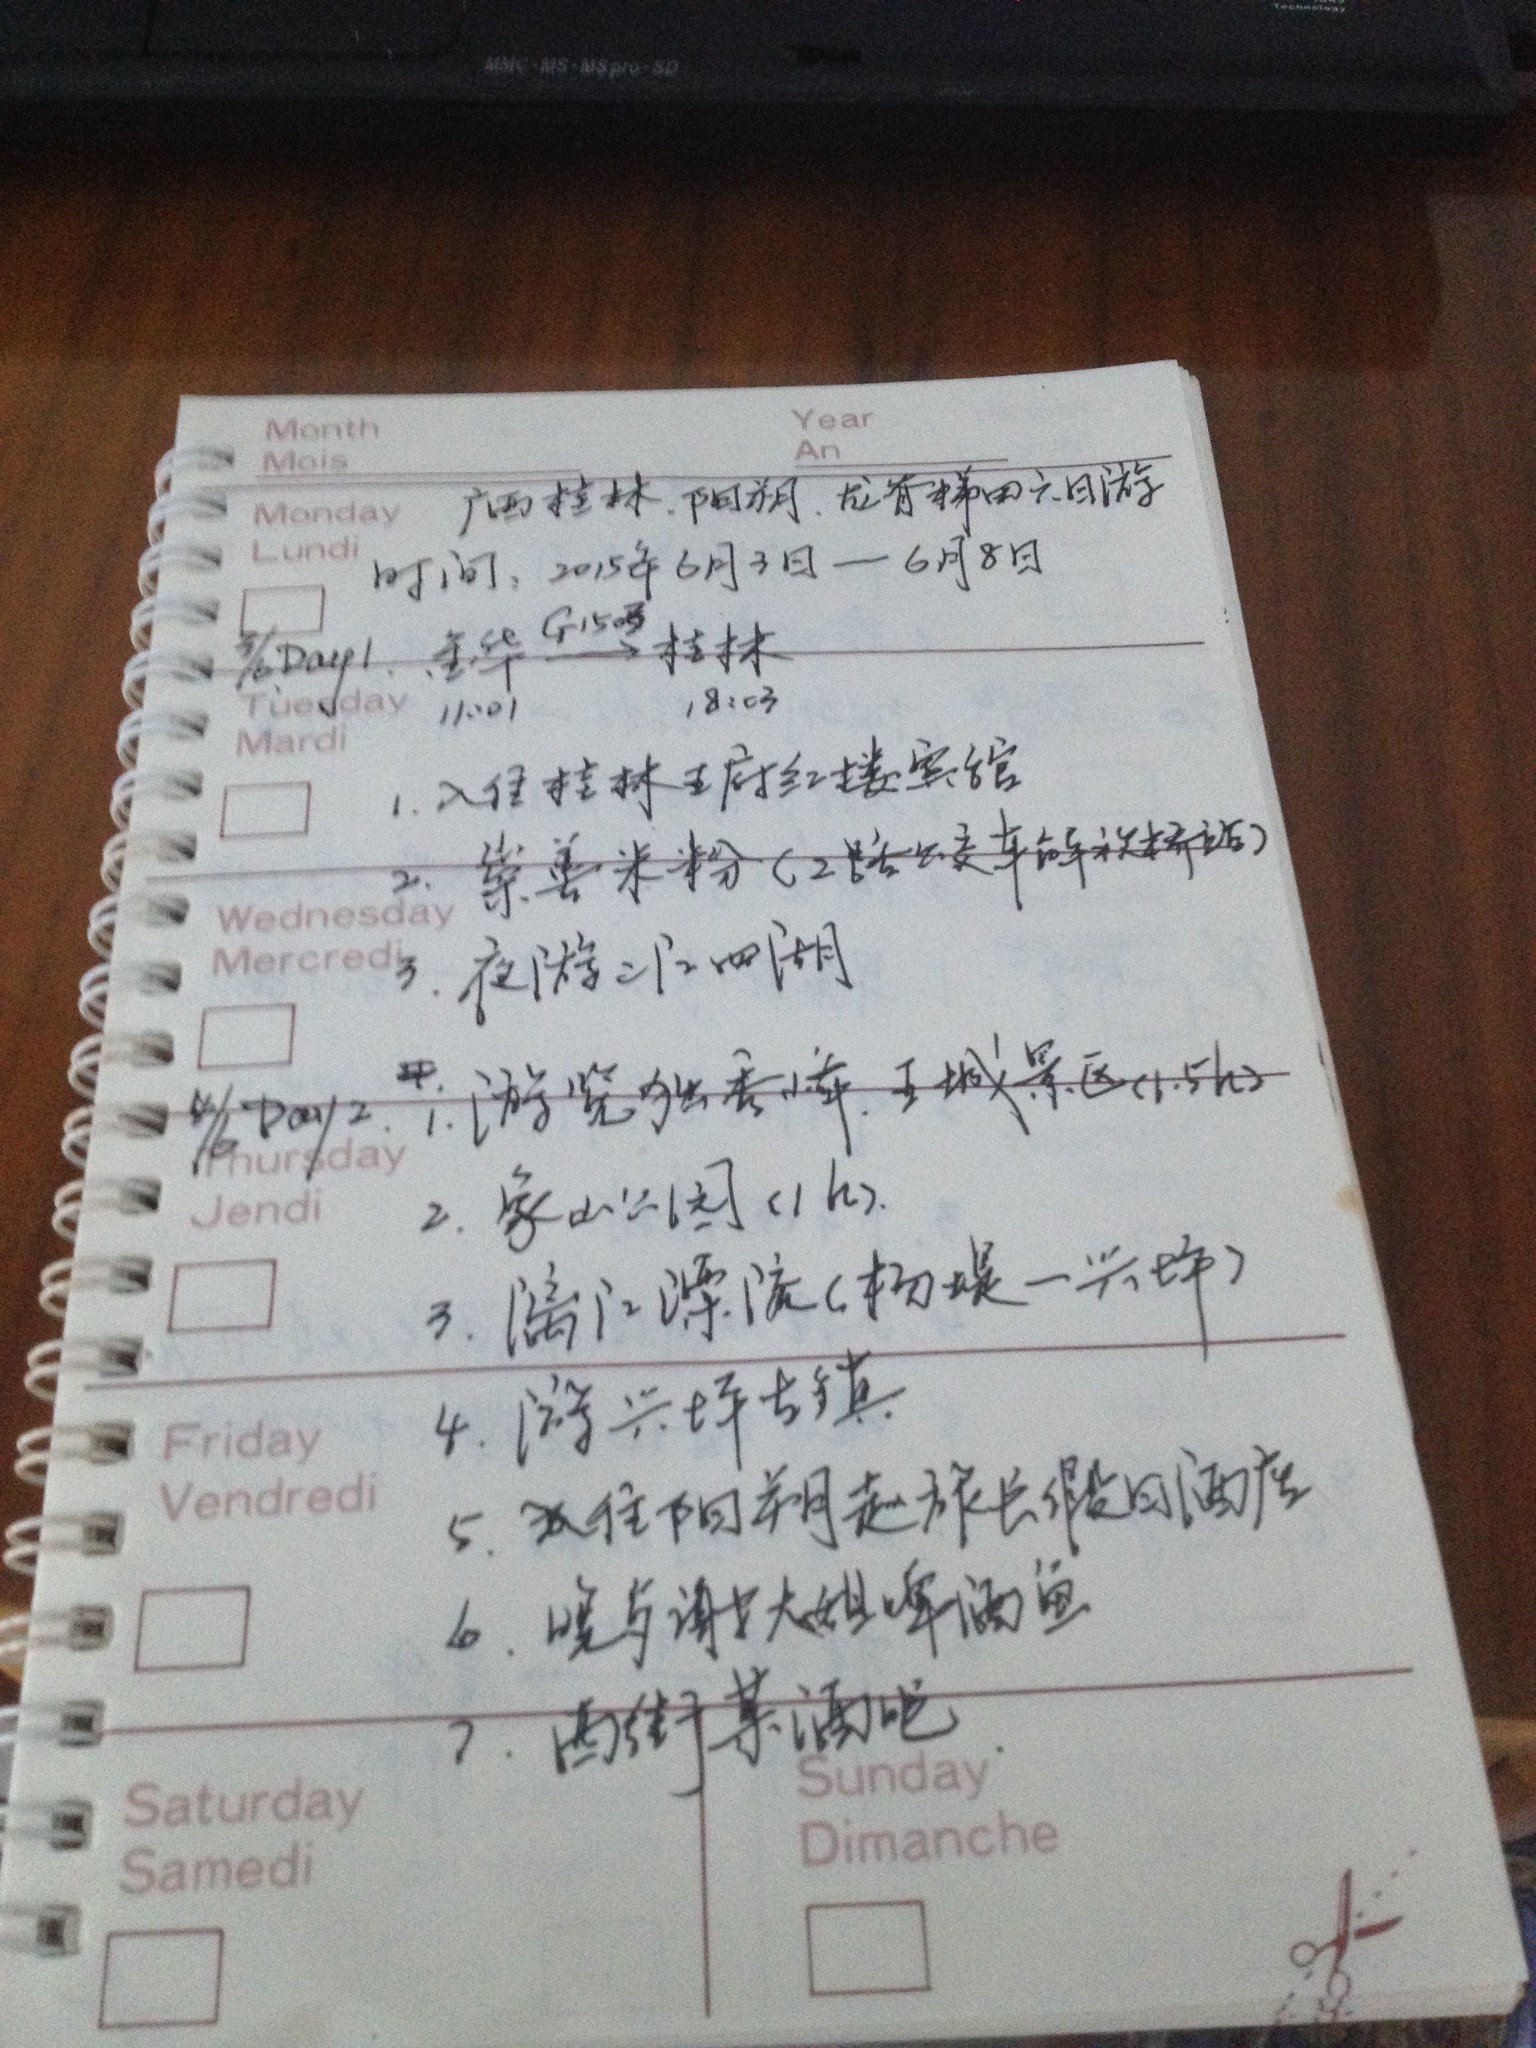 Technology
MMC·MS·MSpro·SD
Month
Mois
Year
An
Monday
Lundi
广西桂林、阳朔、龙脊梯田六日游
时间：2015年6月3日—6月8日
3/6 Day1. 金华 → 桂林
11:01 18:03
Tuesday
Mardi
1. 入住桂林王府红楼宾馆
2. 崇善米粉（2路公交车解放桥站）
Wednesday
Mercredi
3. 夜游二江四湖
4/6 Day2. 1. 游览独秀峰.王城景区(1.5h)
Thursday
Jendi
2. 象山公园(1h).
3. 漓江漂流(杨堤—兴坪)
4. 游兴坪古镇
Friday
Vendredi
5. 入住阳朔赵旅长假日酒店
6. 晚与谢大姐啤酒鱼
7. 西街某酒吧.
Saturday
Samedi
Sunday
Dimanche